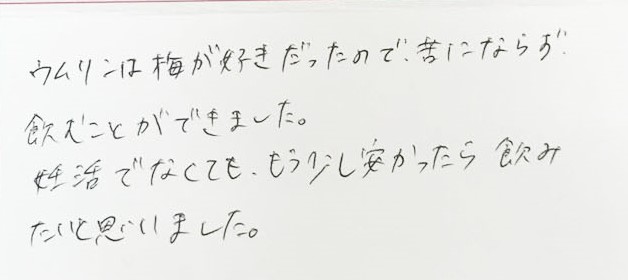 ウムリンは梅が好きだったので、苦にならず、
飲むことができました。
妊活でなくても、もう少し安かったら飲み
たいと思いました。